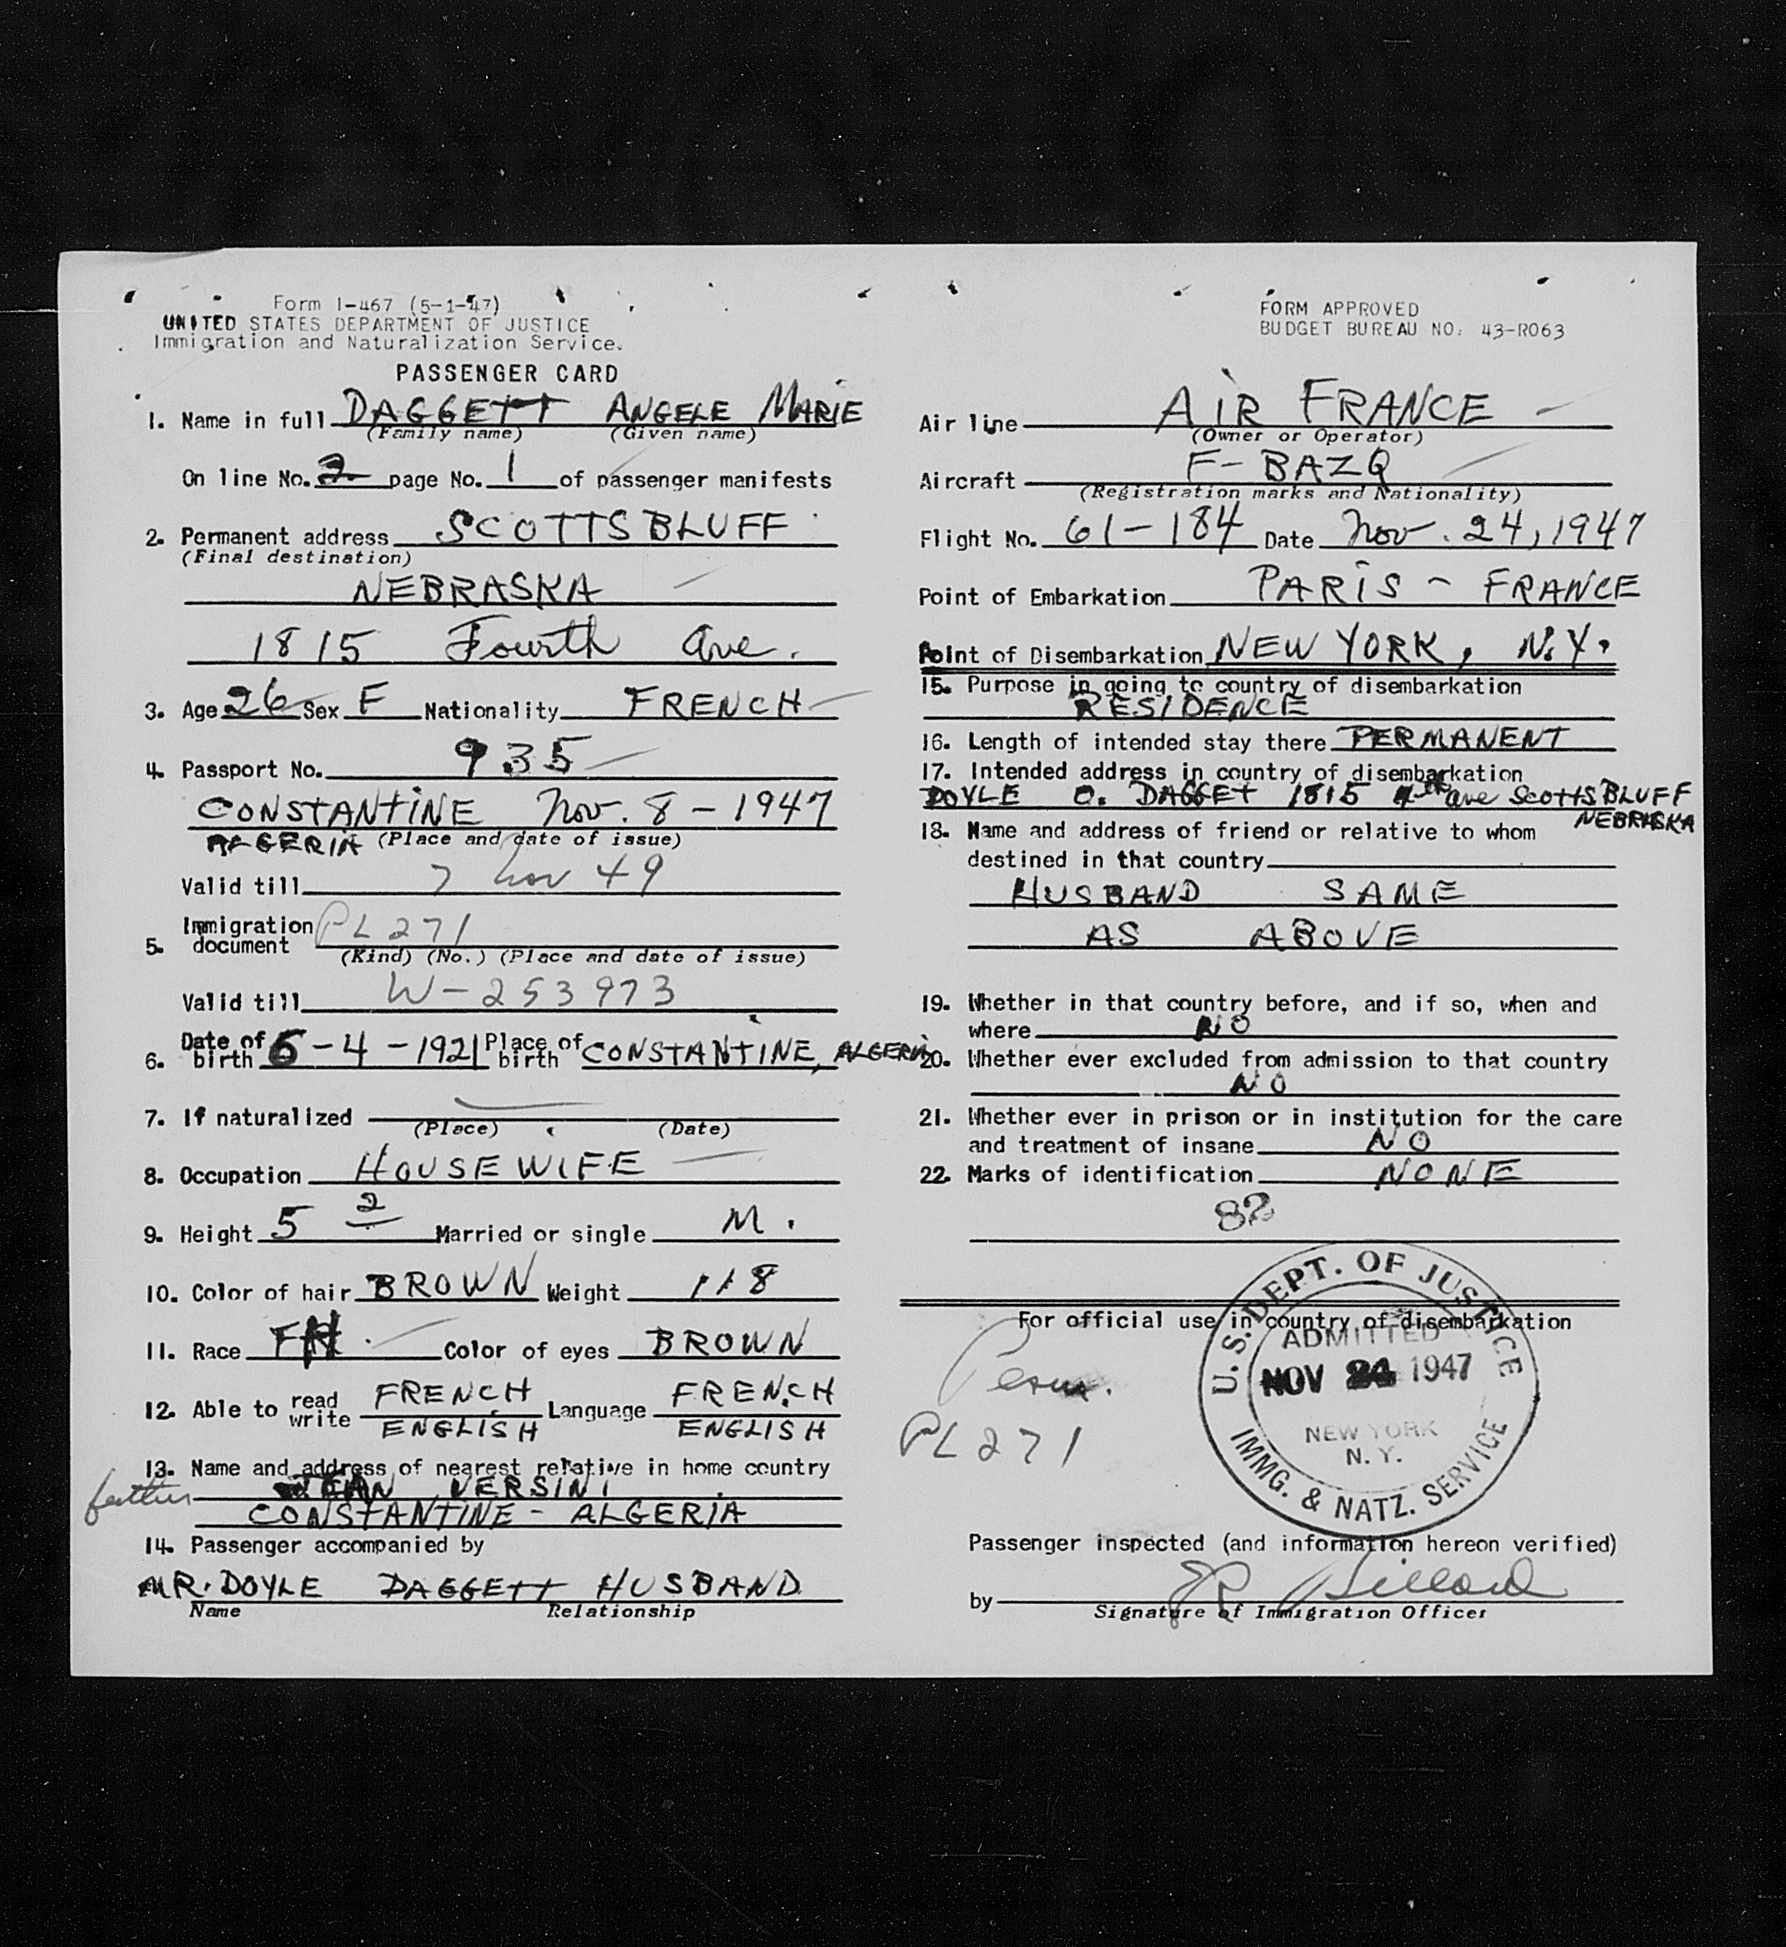 Form I-467 (5-1-47)
UNITED STATES DEPARTMENT OF JUSTICE
Immigration and Naturalization Service.
PASSENGER CARD
1. Name in full DAGGETT ANGELE MARIE
(Family name) (Given name)
On line No. 2 page No. 1 of passenger manifests
2. Permanent address SCOTTSBLUFF
(Final destination)
NEBRASKA
1815 Fourth Ave.
3. Age 26 Sex F Nationality FRENCH
4. Passport No. 935
CONSTANTINE Nov. 8 - 1947
ALGERIA (Place and date of issue)
Valid till 7 Nov 49
5. Immigration document PL 271
(Kind) (No.) (Place and date of issue)
Valid till W-253973
6. Date of birth 6-4-1921 Place of birth CONSTANTINE, ALGERIA
7. If naturalized
(Place) (Date)
8. Occupation HOUSEWIFE
9. Height 5 2 Married or single M.
10. Color of hair BROWN Weight 118
11. Race FR. Color of eyes BROWN
12. Able to read FRENCH Language FRENCH
write ENGLISH ENGLISH
13. Name and address of nearest relative in home country
father JEAN VERSINI
CONSTANTINE - ALGERIA
14. Passenger accompanied by
MR. DOYLE DAGGETT HUSBAND
Name Relationship
FORM APPROVED
BUDGET BUREAU NO. 43-R063
Air line AIR FRANCE
(Owner or Operator)
Aircraft F-BAZQ
(Registration marks and Nationality)
Flight No. 61-184 Date Nov. 24, 1947
Point of Embarkation PARIS - FRANCE
Point of Disembarkation NEW YORK, N.Y.
15. Purpose in going to country of disembarkation
RESIDENCE
16. Length of intended stay there PERMANENT
17. Intended address in country of disembarkation
DOYLE O. DAGGET 1815 4th ave SCOTTSBLUFF
NEBRASKA
18. Name and address of friend or relative to whom
destined in that country
HUSBAND SAME
AS ABOVE
19. Whether in that country before, and if so, when and
where NO
20. Whether ever excluded from admission to that country
NO
21. Whether ever in prison or in institution for the care
and treatment of insane NO
22. Marks of identification NONE
82
For official use in country of disembarkation
Perm.
PL 271
U.S. DEPT. OF JUSTICE
ADMITTED
NOV 24 1947
NEW YORK
N.Y.
IMMG. & NATZ. SERVICE
Passenger inspected (and information hereon verified)
by
Signature of Immigration Officer